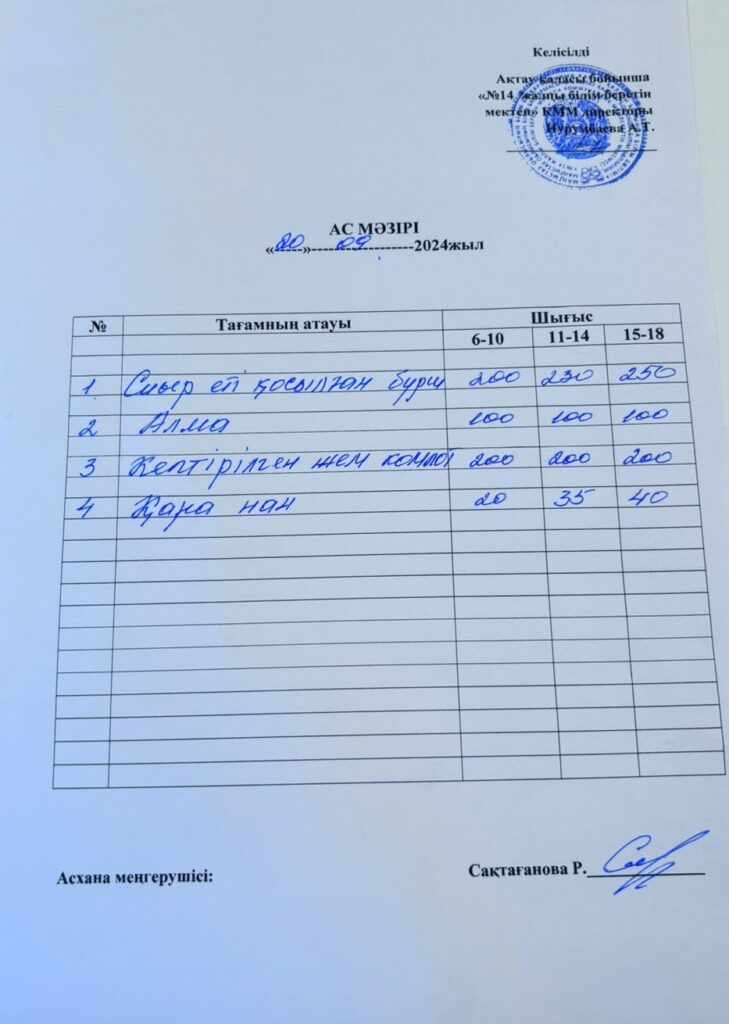 Келісілді
Ақтау қаласы бойынша
«№14 жалпы білім беретін
мектеп» КММ директоры
Нурумбаева А.Т.
АС МӘЗІРІ
«20» 09 2024жыл
№ Тағамның атауы Шығыс
6-10 11-14 15-18
1. Сиыр еті қосылған бурш 200 230 250
2 Алма 100 100 100
3 Кептірілген жем компот 200 200 200
4 Қара нан 20 35 40
Асхана меңгерушісі: Сақтағанова Р.